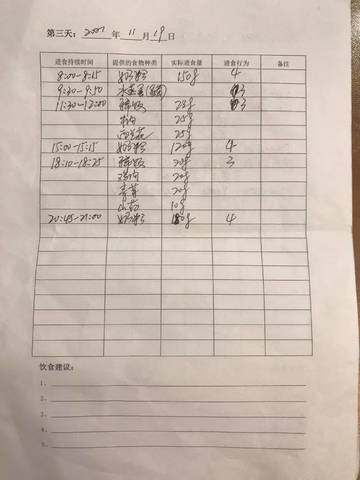 第三天: 2021 年 11 月 19 日
进食持续时间 提供的食物种类 实际进食量 进食行为 备注
8:00-8:15 奶粉 150g 4
9:30-9:50 3
11:30-12:00 稀饭 25g 3
25g
西兰花 25g
15:00-15:15 奶粉 120g 4
18:10-18:25 稀饭 20g 3
鸡肉 20g
20g
山药 10g
20:45-21:00 奶粉 150g 4
饮食建议:
1、
2、
3、
4、
5、